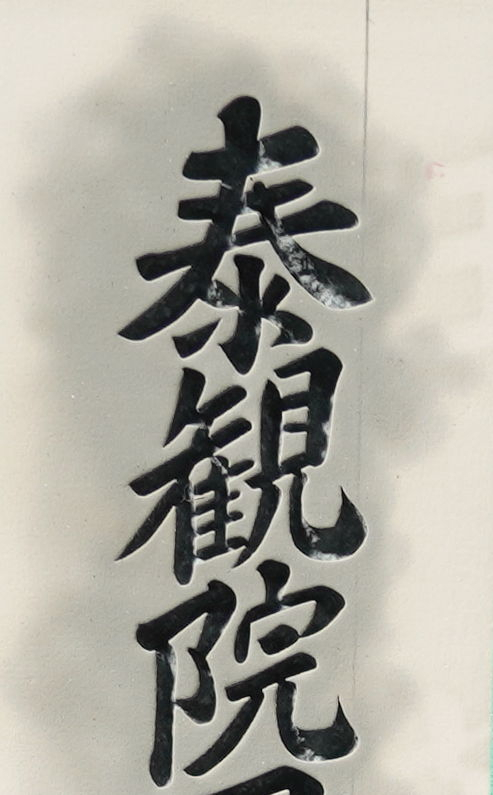 泰観院